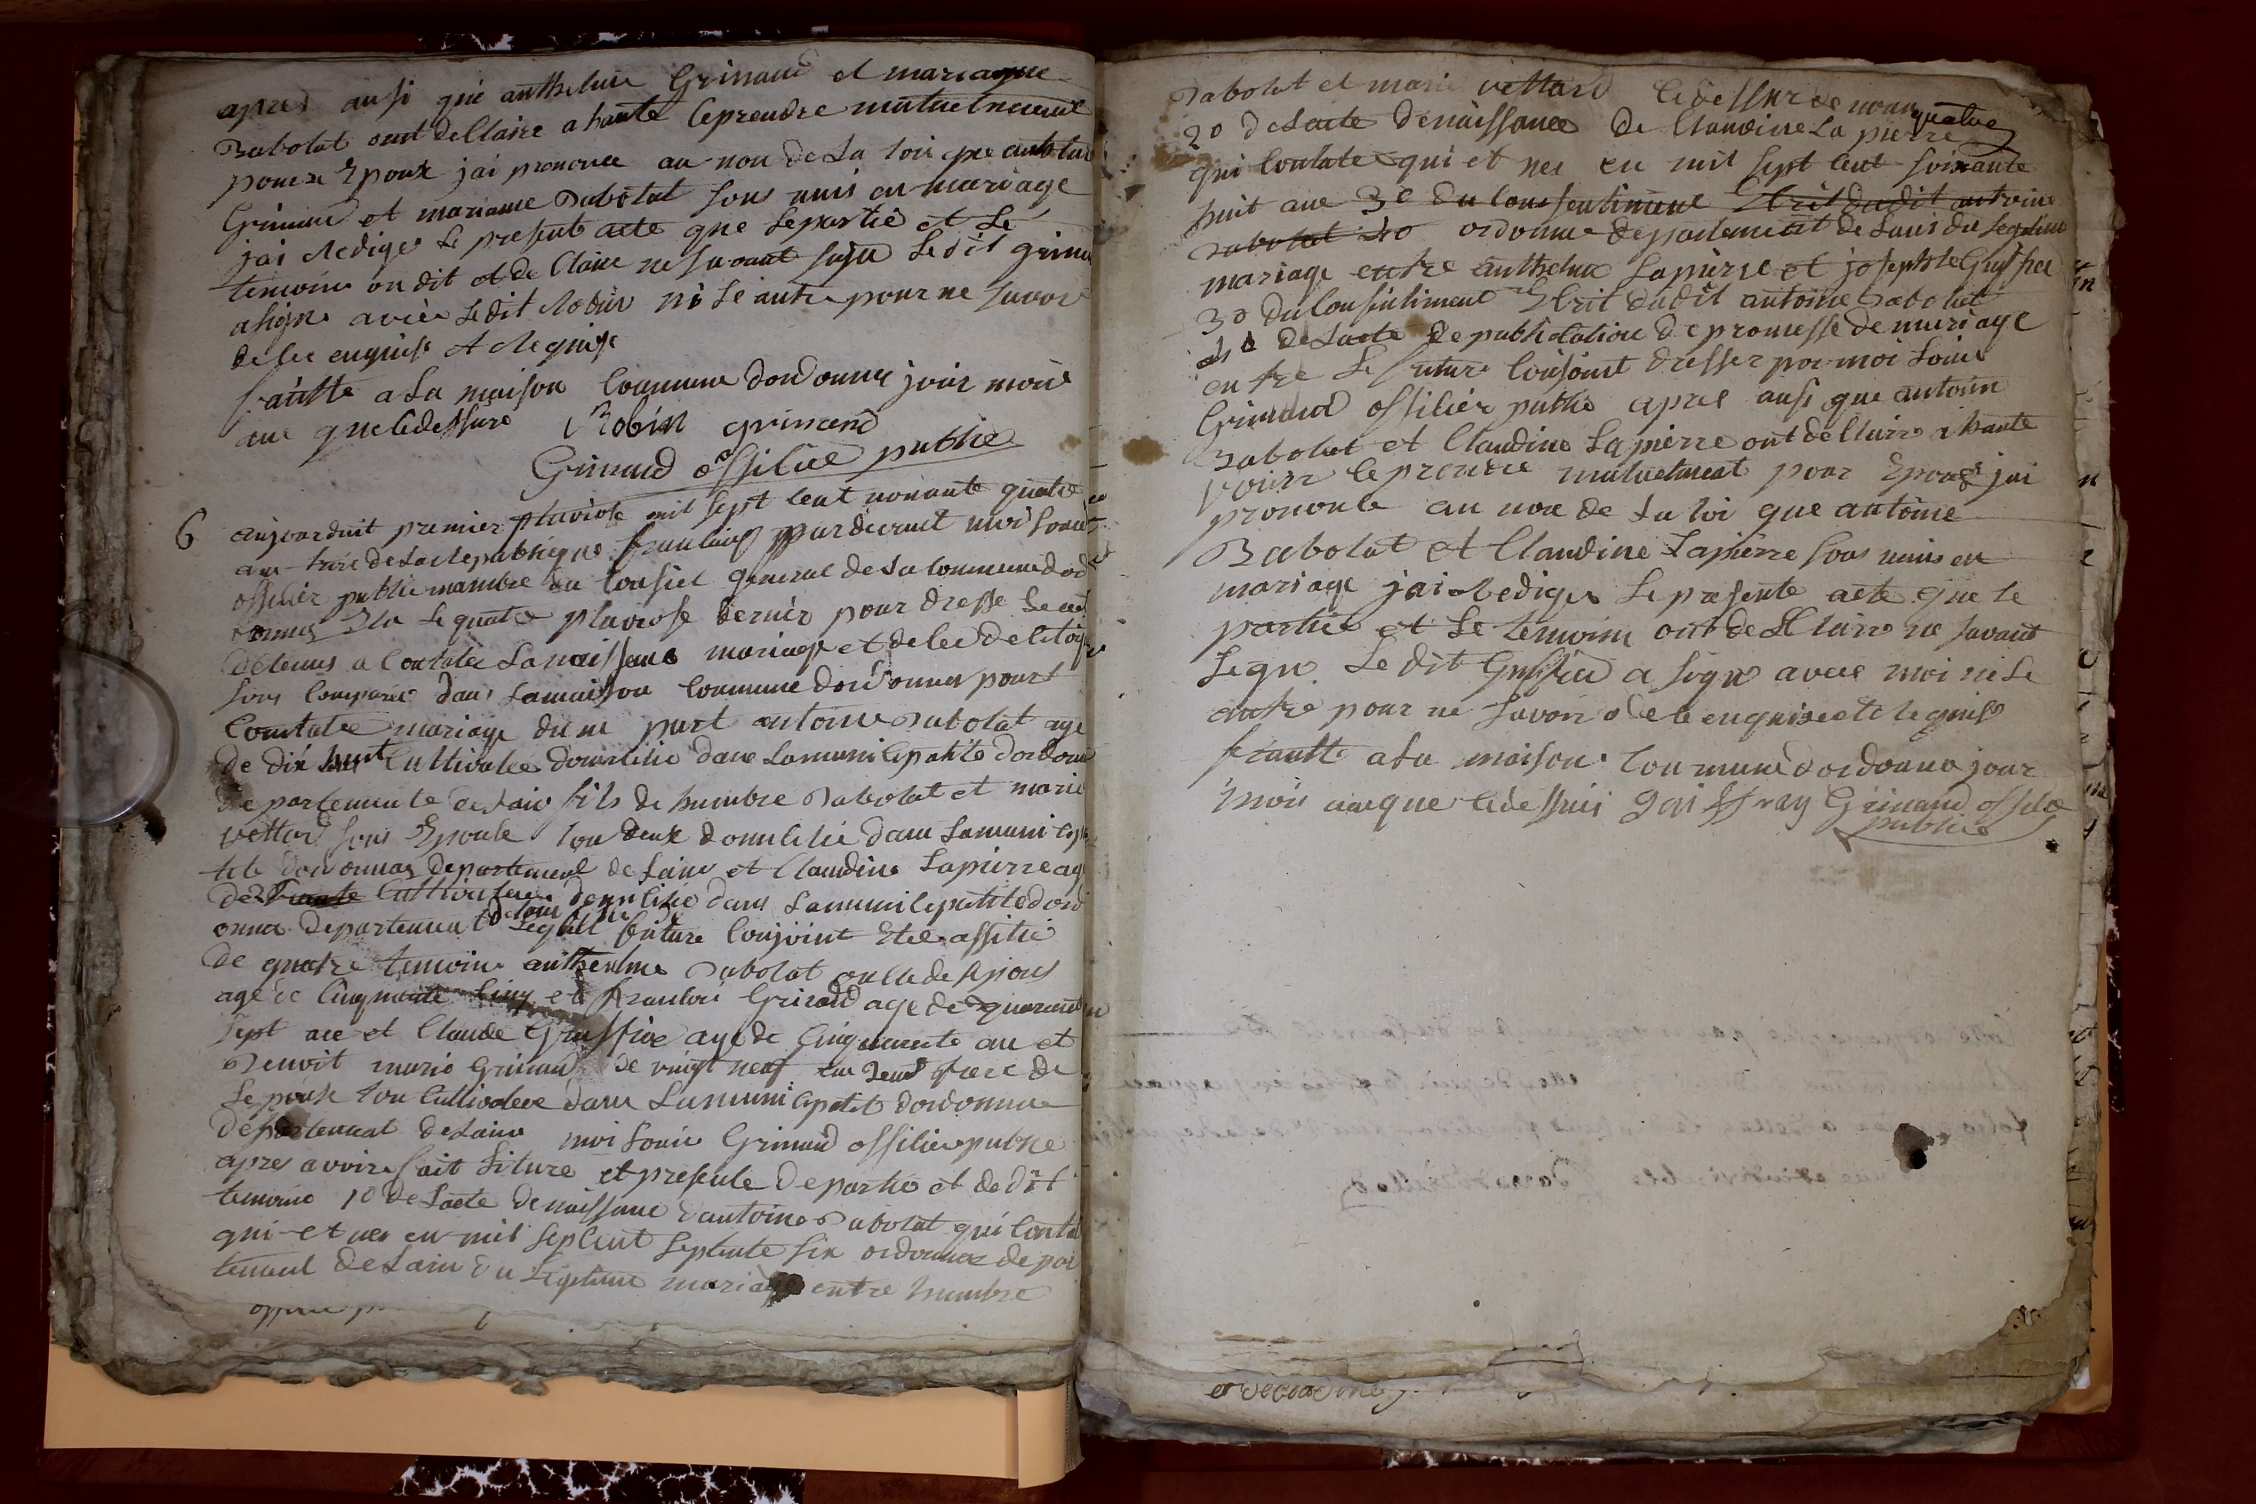 apres ausi que anthelme Grinand et mariague
Babolat ont declaire a haute ceprendre mutuelneemt
pouerx Epoux jai prononcee au non de La loix que anthelme
Grinand et mariame Babolat sons unis en mariage
jai Redigee Le presente acte que Lepartie et Le
temoins on dit et de Claire ne savant signe Le dit grina
a signe avec Ledit Robin ni le autre pour ne savoir
de lce enquise et Requise
faitte a La maison Commune dordonnas jour mois
ane que ledessure Robin grinand
Grinand officice public
6 aujourduit premier pluviose mil sept cent nonante quatre
ane troise de La Republique francaise pardevant moi Louis
officier public manbre du Consiel general de La Commune dor
donnas Elu Le quatre pluviose dernier pour dresse Le acte
detenus a Contater La naissans mariage et delce de Citoye
sons Comparu dans Lamaison Commune dordonnas pour
Comtatee mariage dune part antoine Babolat age
de dix huit Cultivatee domicilie dans Lamunicipalite dordonna
Departemente de Lain fils de humbre Babolat et marie
vettard sons Epouse tou deux domicilie dans Lamunicipa
lite dordonnas Departement de Lains et Claudine Lapierre age
de trante Cultivateure domicilie dans Lamunicipalite dord
onna departement de Lain
future Conjoint Etee assitie
de quatre temoine anthenlme Babolat oncle de Lepous
age de Cinquante Cinq et francois Grinand age de quarante
sept ane et Claude Gruffice age de Cinquante an et
Benoit marie Grinand de vingt neuf ane
Lepouse tou Cultivatere dans Lamunicipalite dordonnas
departement de Lains moi Louis Grinand officier public
apres avvire fait Liture et presente de partie et dedit
temoins 10 de Lacte de naissane dantoine Babolat qui Contat
qui et nee en mil sept cent septente six ordonnas depar
tement de Lain du Legitime mariage entre humbre
Babolat et marie vettard ledessure nome
20 de Lacte denaissance De Claudine La pierre
qui Contate qui et nee en mil sept cent soixante
huit ane 3e du Consentiment Ecrit dudit antoine
Babolat 20 ordonnas departement de Lains du Legitime
mariage entre anthelme Lapierre et josephte Gruffice
30 du Consentiment Ecrit dudit antoine Babolat
de Lacte de publication de promesse de mariage
entre Le future Conjoint dresser par moi Louis
Grinand officier public apres ausi que antoin
Babolat et Claudine Lapierre ont de Claire a haute
voixe leprendre mutuelneent pour Epouse jai
prononce au nore de La loi que antoine
Babolat et Claudine Lapierre sons unis en
mariage jai Rediges Le presente acte que le
partie et Le temoins ont de Claire ne savant
signe Le dit Gruffice a signe avec moi ni Le
autre pour ne savoir de le enquise et Requise
feautte a La maison Commune dordonna jour
mois ane que ledessus Joiffray Grinand officie
public